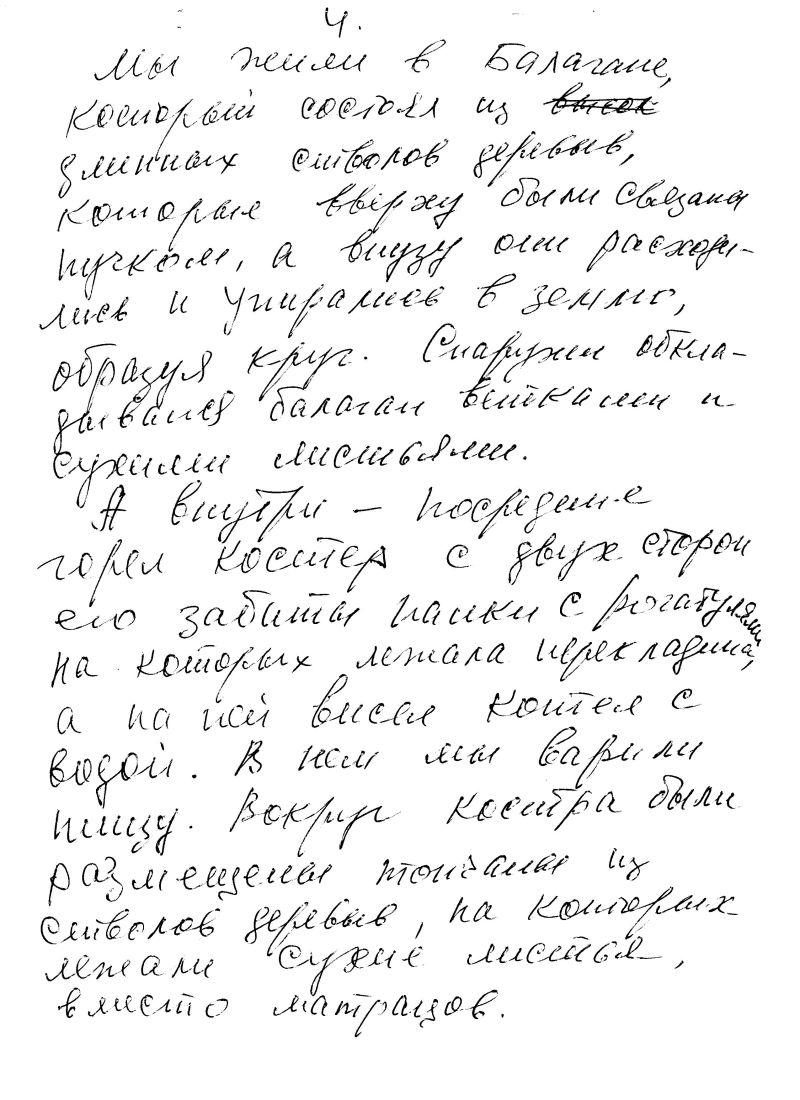 4.
Мы жили в Балагане,
который состоял из высок
длинных стволов деревьев,
которые вверху были связаны
пучком, а внизу они расходи-
лись и упирались в землю,
образуя круг. Снаружи обкла-
дывался балаган ветками и
сухими листьями.
А внутри – посредине
горел костер с двух сторон
его забиты палки с рогатулями
на которых лежала перекладина,
а на ней висел котел с
водой. В нем мы варили
пищу. Вокруг костра были
размещены топчаны из
стволов деревьев, на которых
лежали сухие листья,
вместо матрацов.